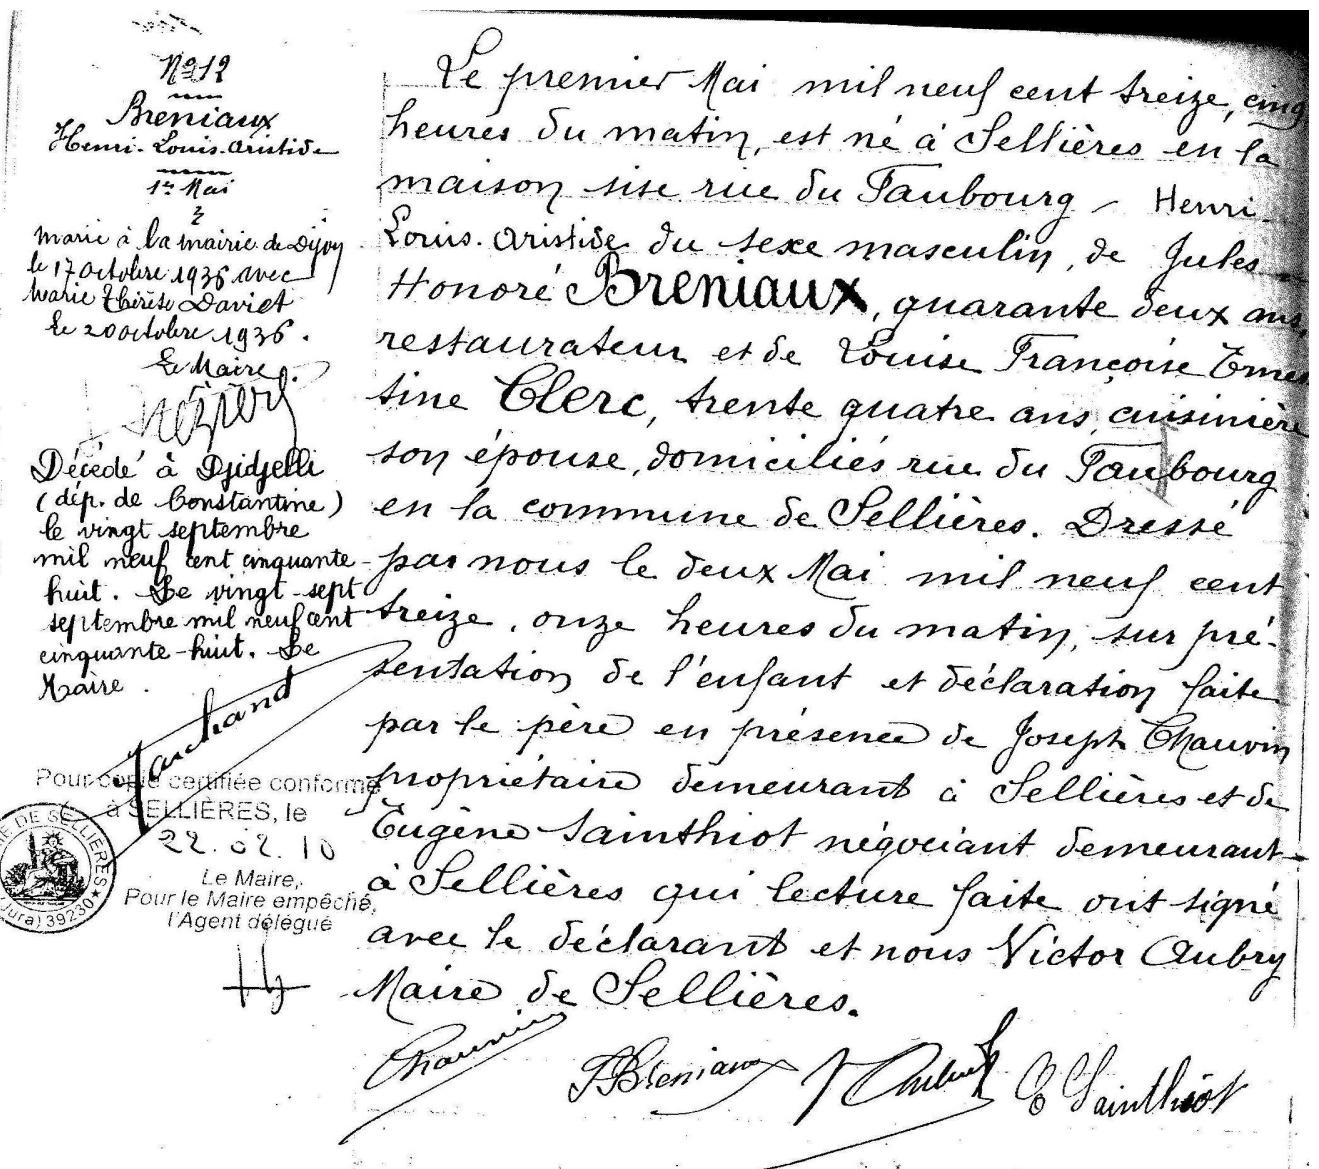 Nº 12
Breniaux
Henri-Louis-Aristide
1er Mai
marié à la mairie de Dijon
le 17 octobre 1936 avec
Marie Thérèse Daviet
Le 20 octobre 1936.
Le Maire.
Décédé à Djidjelli
(dép. de Constantine)
le vingt septembre
mil neuf cent cinquante
huit. Le vingt-sept
septembre mil neuf cent
cinquante-huit. Le
Maire.
Marchand
Pour copie certifiée conforme
à SELLIÈRES, le
22.02.10
Le Maire,
Pour le Maire empêché,
l'Agent délégué
DE SELLIERES
(Jura) 39230
Le premier Mai mil neuf cent treize, cinq
heures du matin, est né à Sellières en la
maison sise rue du Faubourg - Henri-
Louis-Aristide du sexe masculin, de Jules-
Honoré Breniaux, quarante deux ans,
restaurateur et de Louise Françoise Ernes
tine Clerc, trente quatre ans, cuisinière
son épouse, domiciliés rue du Faubourg
en la commune de Sellières. Dressé
par nous le deux Mai mil neuf cent
treize, onze heures du matin, sur pré-
sentation de l'enfant et déclaration faite
par le père en présence de Joseph Chauvin
propriétaire demeurant à Sellières et de
Eugène Sainthiot négociant demeurant
à Sellières qui lecture faite ont signé
avec le déclarant et nous Victor Aubry
Maire de Sellières.
Chauvin
J Breniaux
V Aubry
E Sainthiot